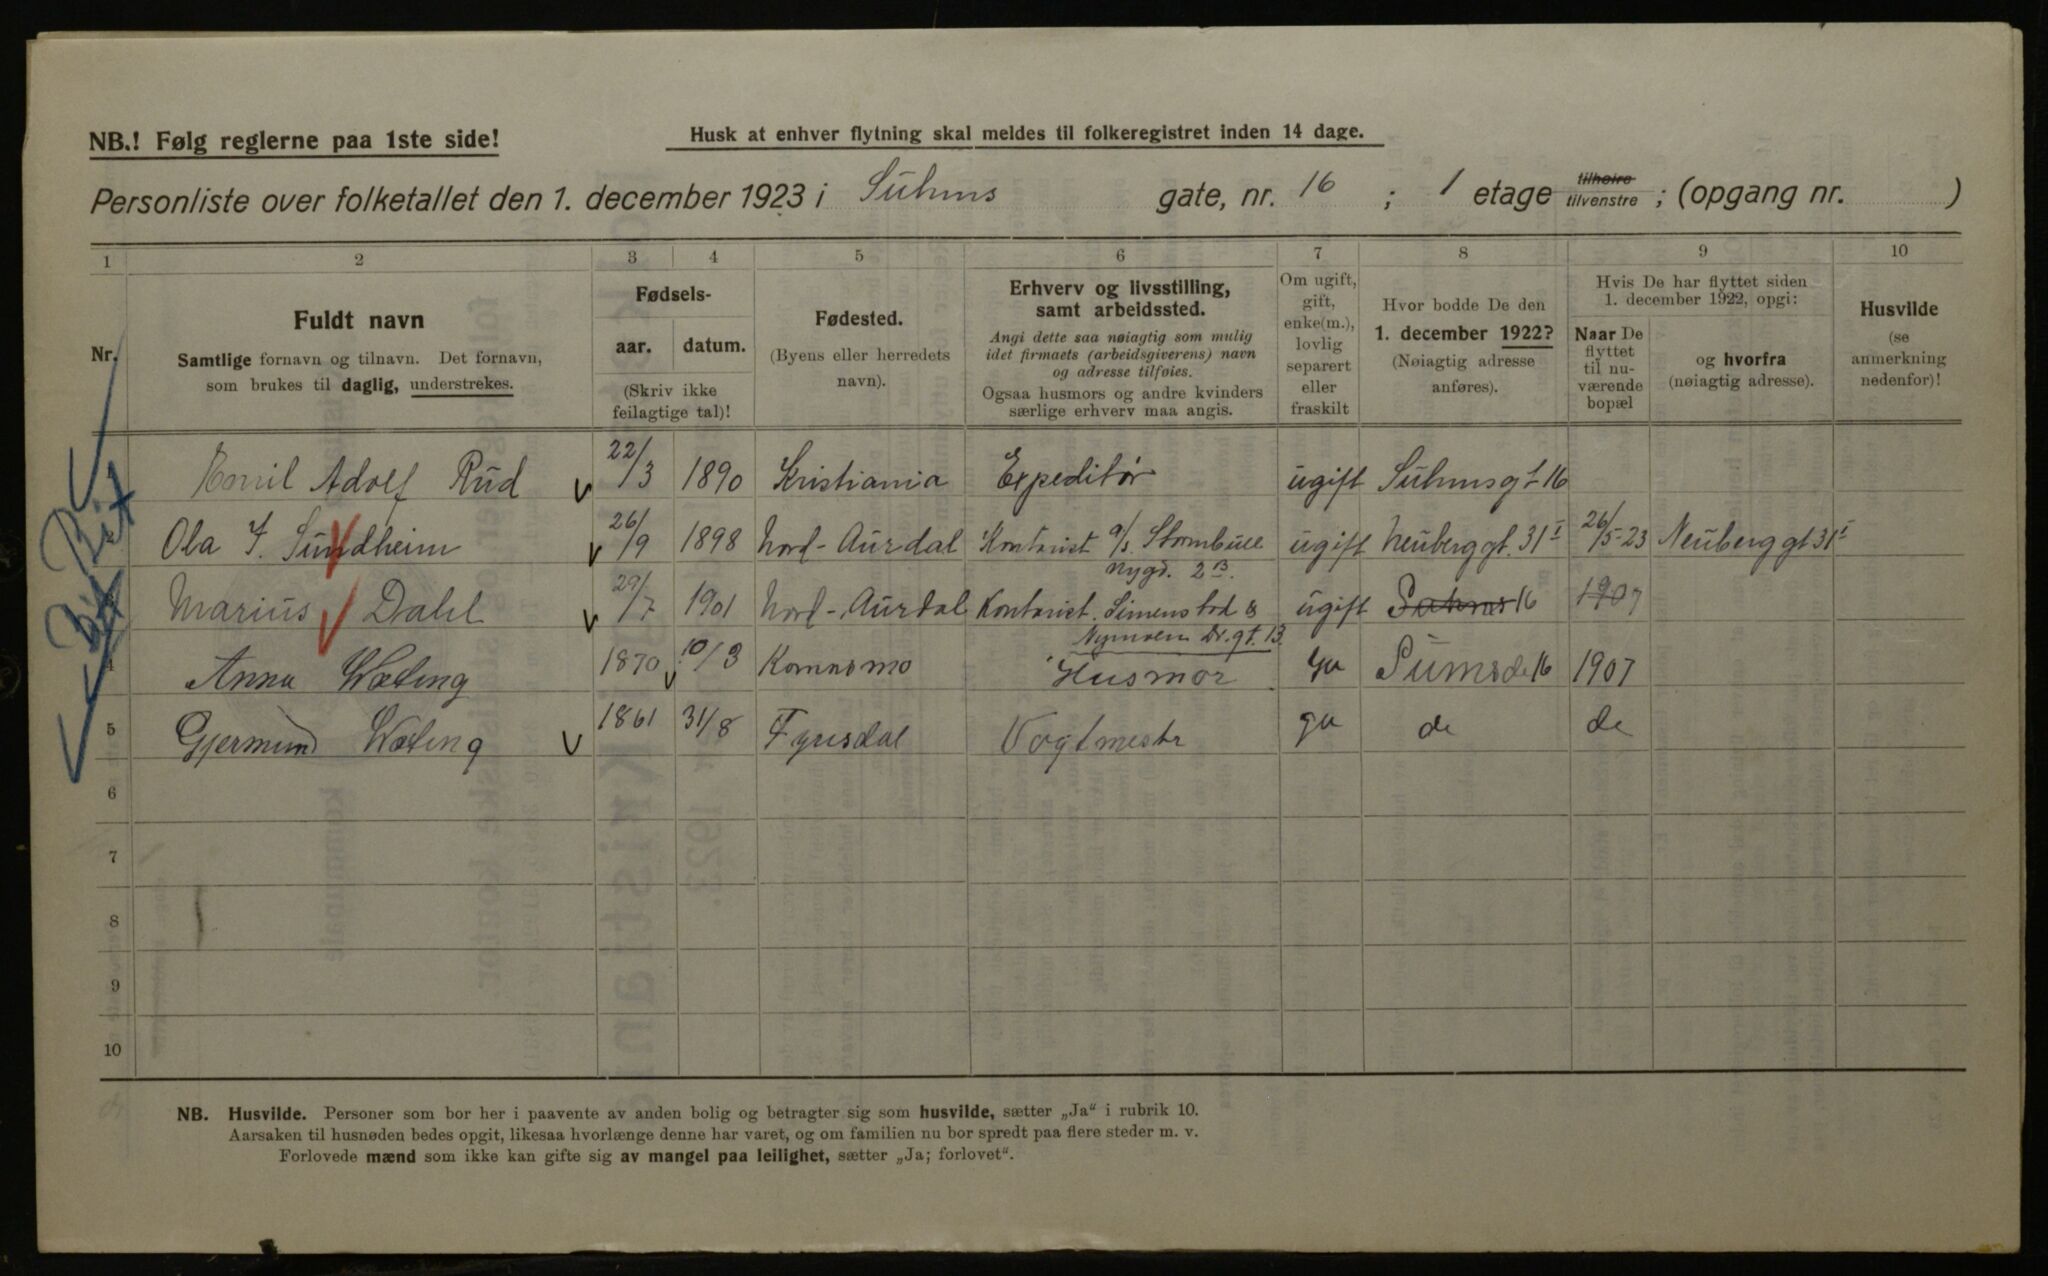 NB.! Følg reglerne paa 1ste side!
Husk at enhver flytning skal meldes til folkeregistret inden 14 dage.
Personliste over folketallet den 1. december 1923 i Suhms gate, nr. 16 ; 1 etage tilhøire tilvenstre ; (opgang nr. )
1 2 3 4 5 6 7 8 9 10
Nr.
Fuldt navn
Samtlige fornavn og tilnavn. Det fornavn,
som brukes til daglig, understrekes.
Fødsels-
aar. datum.
(Skriv ikke
feilagtige tal)!
Fødested.
(Byens eller herredets
navn).
Erhverv og livsstilling,
samt arbeidssted.
Angi dette saa nøiagtig som mulig
idet firmaets (arbeidsgiverens) navn
og adresse tilføies.
Ogsaa husmors og andre kvinders
særlige erhverv maa angis.
Om ugift,
gift,
enke(m.),
lovlig
separert
eller
fraskilt
Hvor bodde De den
1. december 1922?
(Nøiagtig adresse
anføres).
Hvis De har flyttet siden
1. december 1922, opgi:
Naar De
flyttet
til nu-
værende
bopæl
og hvorfra
(nøiagtig adresse).
Husvilde
(se
anmerkning
nedenfor)!
Emil Adolf Rud 22/3 1890 Kristiania Expeditør ugift Suhmsgt 16
2 Ola I. Sundheim 26/9 1898 Nord-Aurdal Kontorist a/s. Stormbull ugift Neuberggt. 31 I 26/5-23 Neuberggt 31 I
Nygd. 2 B.
3 Marius Dahl 29/7 1901 Nord-Aurdal Kontorist. Simenstad & ugift Suhms 16 1907
Nymoen Dr.gt. 13
4 Anna Wæting 1870 10/3 Husmor 16 1907
5 Gjermund Wæting 1861 31/8 Fyresdal Vogtmestr de de
6
7
8
9
10
NB. Husvilde. Personer som bor her i paavente av anden bolig og betragter sig som husvilde, sætter „Ja“ i rubrik 10.
Aarsaken til husnøden bedes opgit, likesaa hvorlænge denne har varet, og om familien nu bor spredt paa flere steder m. v.
Forlovede mænd som ikke kan gifte sig av mangel paa leilighet, sætter „Ja; forlovet“.